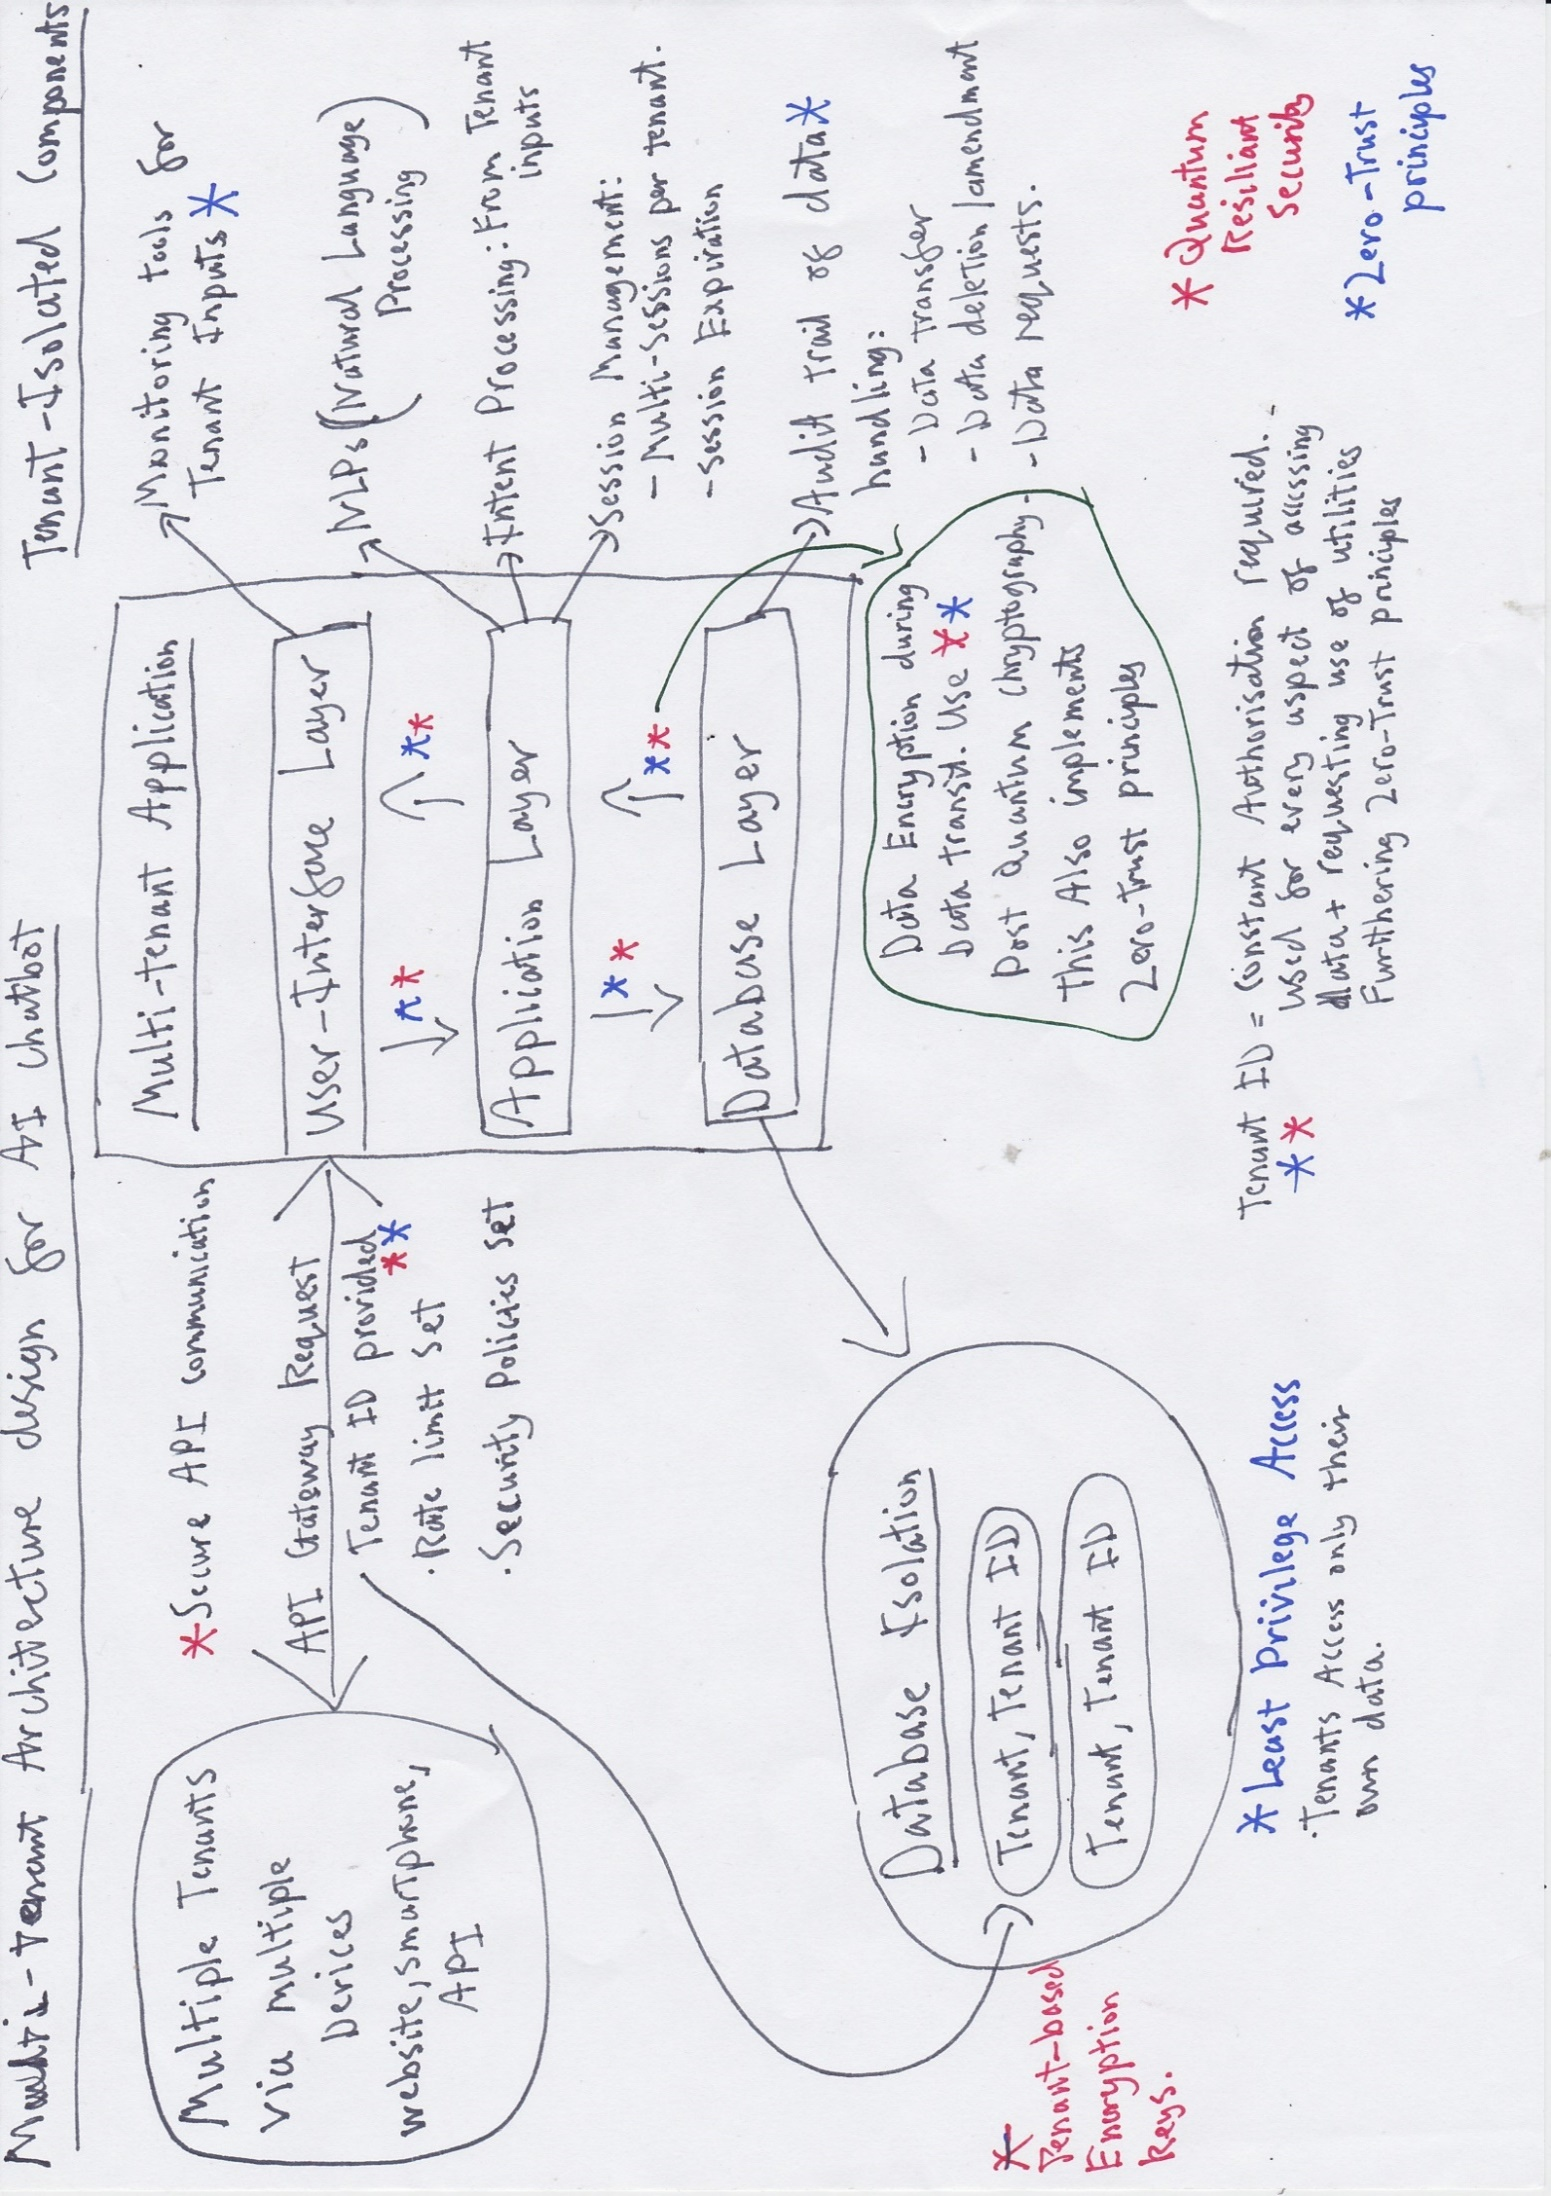 Multi-tenant Architecture design for AI chatbot
Tenant-Isolated Components
Multiple Tenants
via multiple
Devices
website, smartphone,
API
*Secure API communication
API Gateway Request
Tenant ID provided
**
·Rate limit set
·Security policies set
Multi-tenant Application
User-Interface Layer
**
**
Application Layer
**
**
Database Layer
Monitoring tools for
Tenant Inputs *
NLPs (Natural Language
Processing)
Intent Processing: From Tenant
inputs
Session Management:
- Multi-sessions per tenant.
- Session Expiration
Audit trail of data*
handling:
- Data transfer
- Data deletion/amendment
- Data requests.
Data Encryption during
Data transit. Use **
Post Quantum Chryptography.
This Also implements
Zero-Trust principles
*Quantum
Resiliant
Security
*Zero-Trust
principles
Database Isolation
Tenant, Tenant ID
Tenant, Tenant ID
*
Tenant-based
Encryption
Keys.
*Least Privilege Access
·Tenants Access only their
own data.
Tenant ID = constant Authorisation required.
** used for every aspect of accessing
data + requesting use of utilities
Furthering Zero-Trust principles